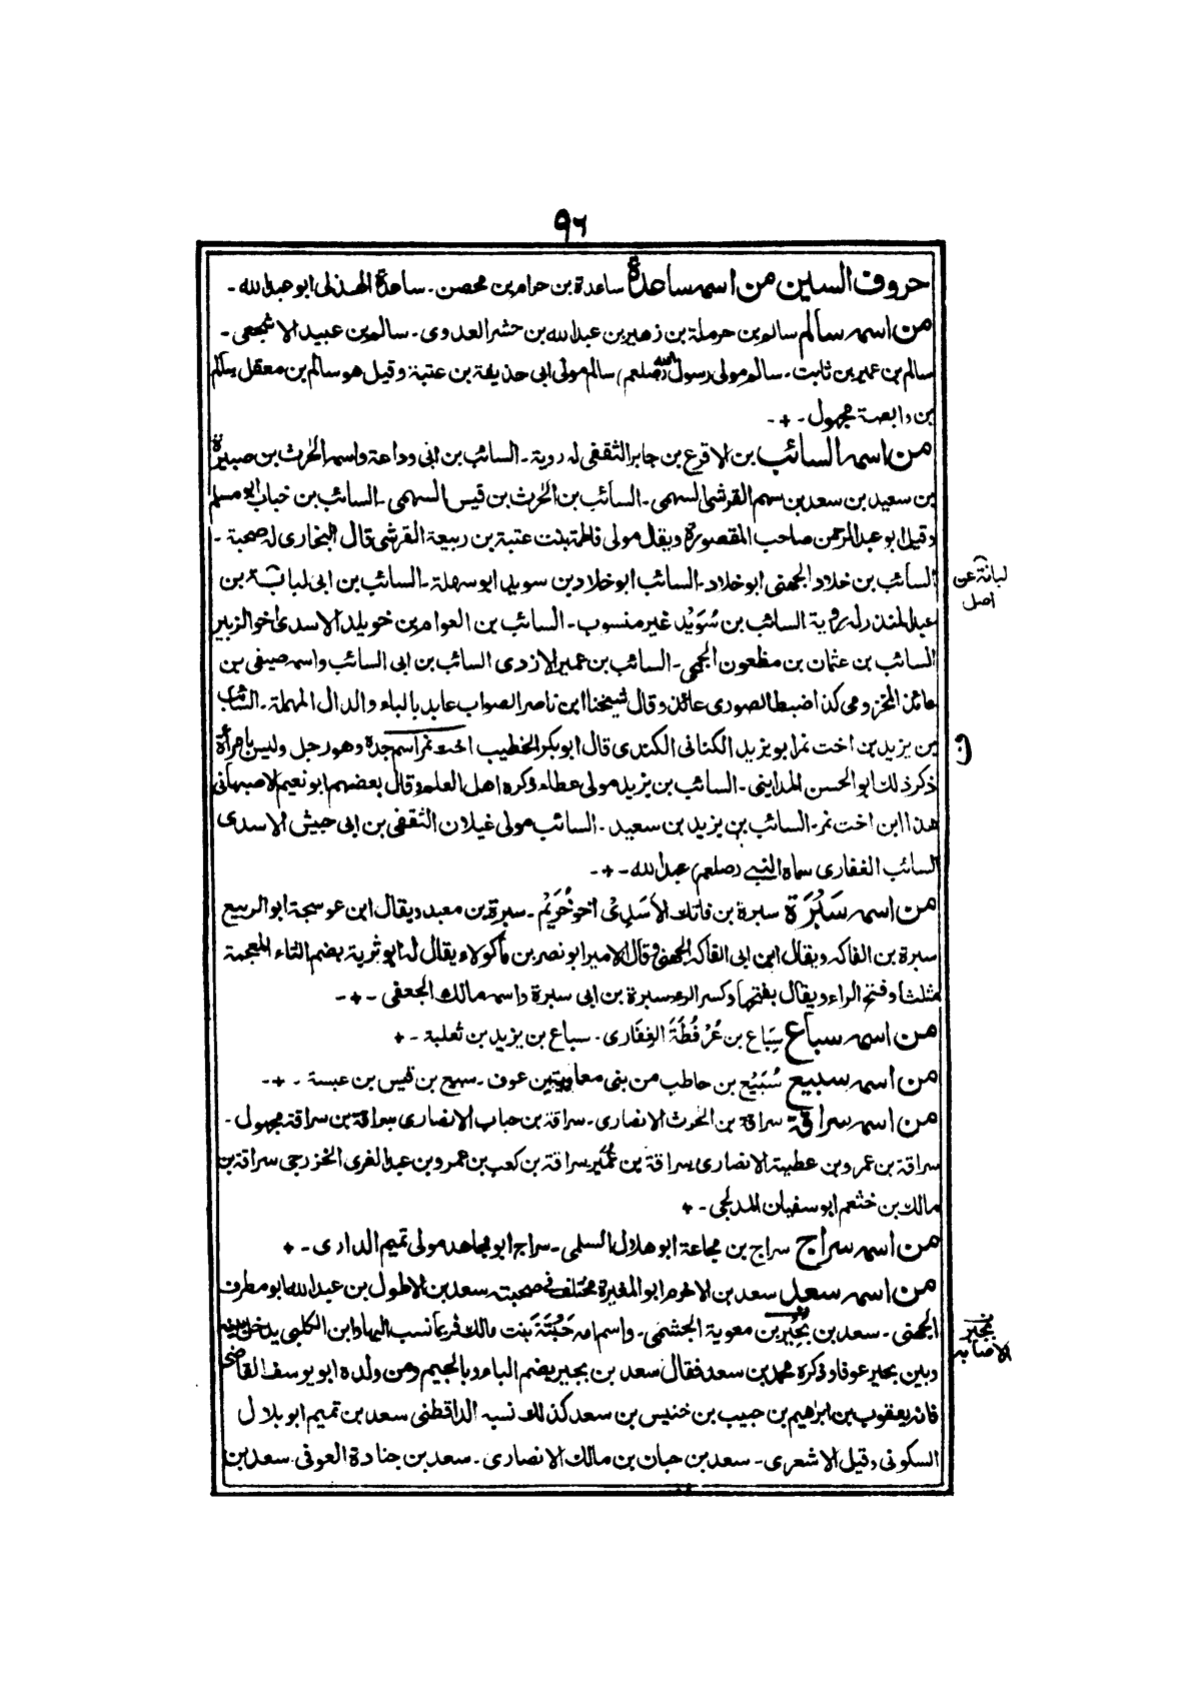 ٩٦
حروف السين من اسمه ساعدة ساعدة بن حرام بن محصن - ساعدة الهذلى ابو عبدالله -
من اسمه سالم سالم بن حرملة بن زهير بن عبدالله بن حشر العدوى - سالم بن عبيد الاشجعى -
سالم بن عمير بن ثابت - سالم مولى رسول الله (صلعم) سالم مولى ابى حذيفة بن عتبة وقيل هو سالم بن معقل سالم
بن وابصة مجهول - + -
من اسمه السائب بن الاقرع بن جابر الثقفى له روية - السائب بن ابى وداعة واسمه الحرث بن صبيرة
بن سعيد بن سعد بن سهم القرشى السهمى - السائب بن الحرث بن قيس السهمى - السائب بن خباب ابو مسلم
وقيل ابو عبدالرحمن صاحب المقصورة ويقال مولى فاطمة بنت عتبة بن ربيعة القرشى قال البخارى له صحبة -
السائب بن خلاد الجهنى ابو خلاد - السائب ابو خلاد بن سويد ابو سهلة - السائب بن ابى لبابة بن
عبدالمنذر له روية السائب بن سُوَيْد غير منسوب - السائب بن العوام بن خويلد الاسدى اخو الزبير
السائب بن عثمان بن مظعون الجمحى - السائب بن عمير الازدى السائب بن ابى السائب واسمه صيفى بن
عائذ المخزومى كذا ضبطه الصورى عائذ وقال شيخنا ابن ناصر الصواب عابد بالباء والدال المهملة - السائب
بن يزيد بن اخت نمر ابو يزيد الكنانى الكندى قال ابوبكر الخطيب اخت نمر اسم جده وهو رجل وليس بامرأة
ذكر ذلك ابو الحسن المداينى - السائب بن يزيد مولى عطاء ذكره اهل العلم وقال بعضهم ابو نعيم الاصبهانى
هذا ابن اخت نمر - السائب بن يزيد بن سعيد - السائب مولى غيلان الثقفى بن ابى حبيش الاسدى
السائب الغفارى سماه النبى (صلعم) عبدالله - + -
من اسمه سَبْرَة سبرة بن فاتك الأسَدِىْ اخو خُرَيْم - سبرة بن معبد ويقال ابن عوسجة ابو الربيع
سبرة بن الفاكه ويقال ابن ابى الفاكه الجهنى وقال الامير ابو نصر بن ماكولاء ويقال له ابو ثرية بضم الثاء المعجمة
مثلثا وفتح الراء ويقال بفتحها وكسر الراء سبرة بن ابى سبرة واسمه مالك الجعفى - + -
من اسمه سباع سِبَاع بن عُرْفُطَةَ الغِفَارى - سباع بن يزيد بن ثعلبة - +
من اسمه سبيع سُبَيْع بن حاطب من بنى معاوية بن عوف - سبيع بن قيس بن عبسة - + -
من اسمه سراقة سراقة بن الحرث الانصارى - سراقة بن حباب الانصارى سراقة بن سراقة مجهول -
سراقة بن عمرو بن عطية الانصارى سراقة بن عُمَيْر سراقة بن كعب بن عمرو بن عبدالغرى الخزرجى سراقة بن
مالك بن خثعم ابو سفيان المدلجى - +
من اسمه سراج سراج بن مجاعة ابو هلال السلمى - سراج ابو مجاهد مولى تميم الدارى - +
من اسمه سعد سعد بن الاخرم ابو المغيرة مختلف فى صحبته سعد بن الاطول بن عبدالله ابو مطرف
الجهنى - سعد بن بُجَيْر بن معوية الجشمى - واسم امه حَبْتَةَ بنت مالك فربما نسب اليها وابن الكلبى يدخل بينه
وبين بجير عوفا وذكره محمد بن سعد فقال سعد بن بجير بضم الباء وبالجيم ومن ولده ابو يوسف القاضى
فانه يعقوب بن ابراهيم بن حبيب بن خنيس بن سعد كذلك نسبه الداقطنى سعد بن تميم ابو بلال
السكونى وقيل الاشعرى - سعد بن حبان بن مالك الانصارى - سعد بن جنادة العوفى سعد بن
لبانة عن
اصل
بُجَيْر
الاصابه